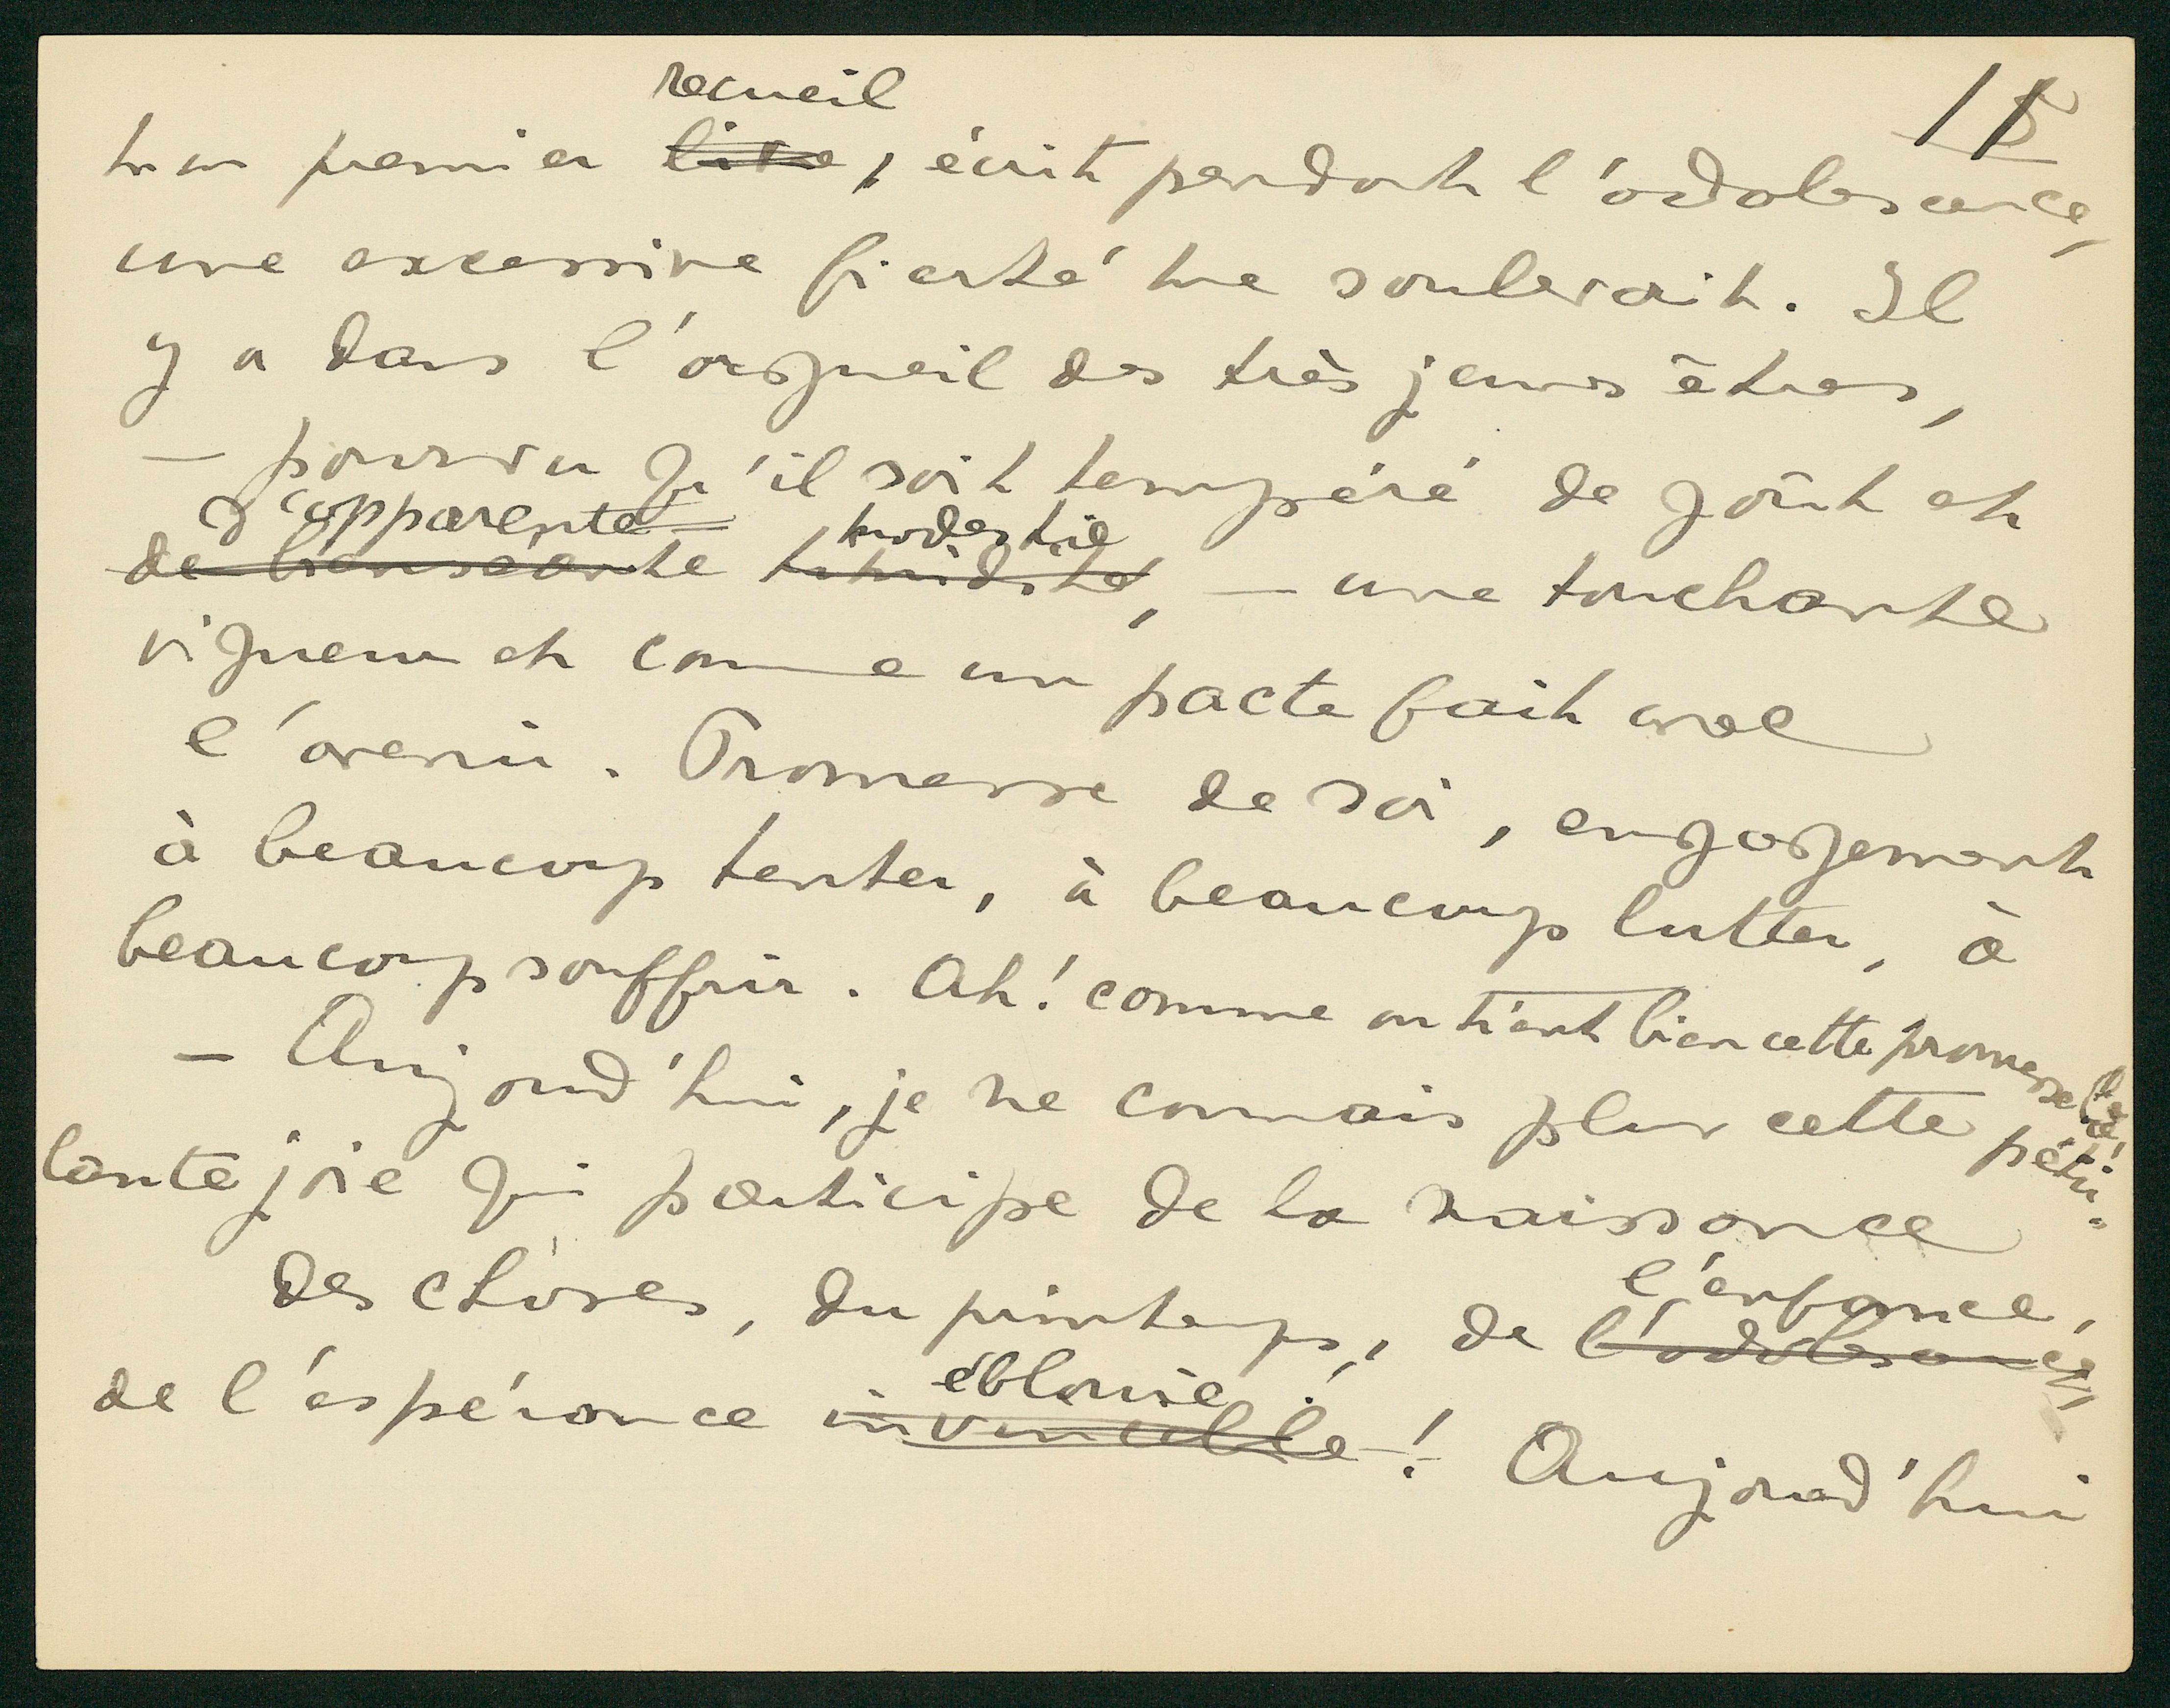 15
recueil
mon premier livre, écrit pendant l'adolescence,
une excessive fierté me soulevait. Il
y a dans l'orgueil des très jeunes êtres,
— pourvu qu'il soit tempéré de goût et
d'apparente modestie
de bienséante timidité, — une touchante
vigueur et comme un pacte fait avec
l'avenir. Promesse de soi, engagement
à beaucoup tenter, à beaucoup lutter, à
beaucoup souffrir. Ah! comme on tient bien cette promesse là!
— Aujourd'hui, je ne connais plus cette pétu-
lante joie qui participe de la naissance
l'enfance,
des choses, du printemps, de l'adolescence,
éblouie!
de l'espérance invincible! Aujourd'hui